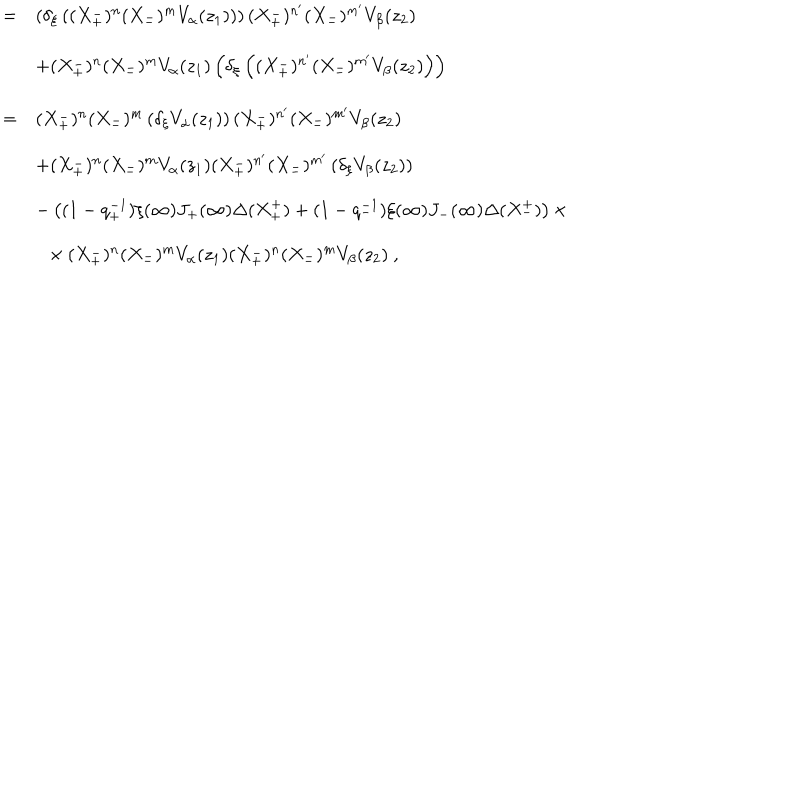 = (δ_ξ ((X_+^-)^n (X_-^-)^m V_α(z_1))) (X_+^-)^{n'} (X_-^-)^{m'} V_β(z_2)
+(X_+^-)^n (X_-^-)^m V_α(z_1) (δ_ξ ((X_+^-)^{n'} (X_-^-)^{m'} V_β(z_2)))
= (X_+^-)^n (X_-^-)^m (δ_ξ V_α(z_1)) (X_+^-)^{n'} (X_-^-)^{m'} V_β(z_2)
+(X_+^-)^n (X_-^-)^m V_α(z_1)(X_+^-)^{n'} (X_-^-)^{m'} (δ_ξ V_β(z_2))
− ((1 − q_+^{-1})ξ(∞)J_+(∞)Δ(X_+^+) + (1 − q_-^{-1})ξ(∞)J_-(∞)Δ(X_-^+)) ×
× (X_+^-)^n (X_-^-)^m V_α(z_1)(X_+^-)^n (X_-^-)^m V_β(z_2) ,